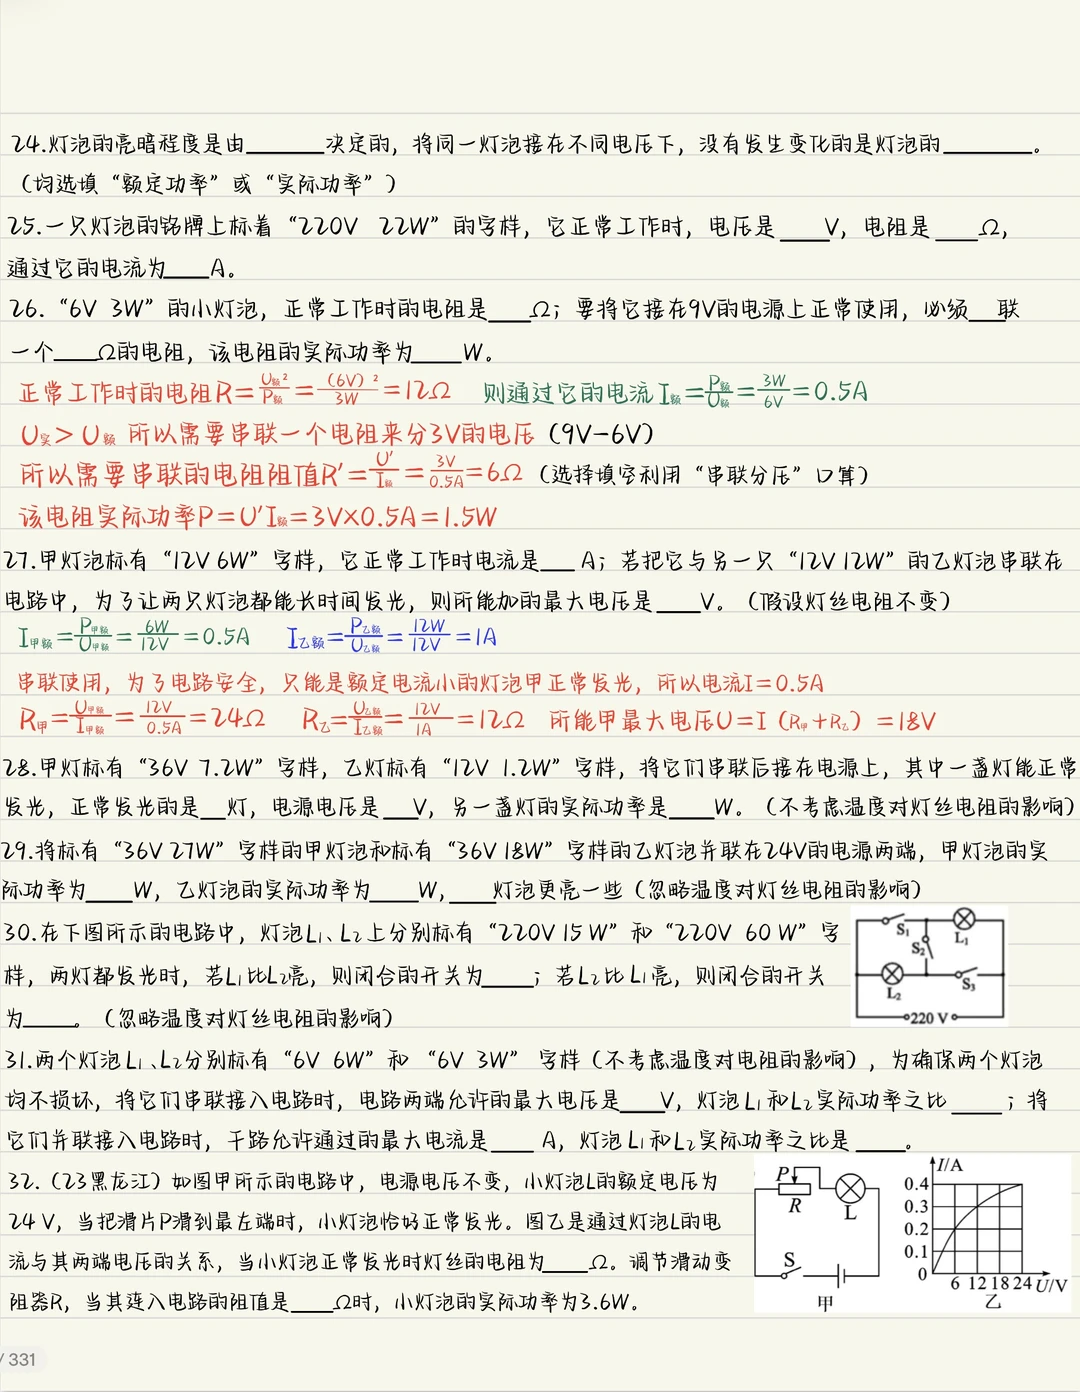 24.灯泡的亮暗程度是由____决定的，将同一灯泡接在不同电压下，没有发生变化的是灯泡的____。
（均选填“额定功率”或“实际功率”）
25.一只灯泡的铭牌上标着“220V 22W”的字样，它正常工作时，电压是___V，电阻是___Ω，
通过它的电流为___A。
26.“6V 3W”的小灯泡，正常工作时的电阻是___Ω；要将它接在9V的电源上正常使用，必须__联
一个___Ω的电阻，该电阻的实际功率为___W。
正常工作时的电阻R=U额²/P额=(6V)²/3W=12Ω 则通过它的电流I额=P额/U额=3W/6V=0.5A
U实>U额 所以需要串联一个电阻来分3V的电压（9V-6V）
所以需要串联的电阻阻值R'=U'/I额=3V/0.5A=6Ω（选择填空利用“串联分压”口算）
该电阻实际功率P=U'I额=3V×0.5A=1.5W
27.甲灯泡标有“12V 6W”字样，它正常工作时电流是___A；若把它与另一只“12V 12W”的乙灯泡串联在
电路中，为了让两只灯泡都能长时间发光，则所能加的最大电压是___V。（假设灯丝电阻不变）
I甲额=P甲额/U甲额=6W/12V=0.5A I乙额=P乙额/U乙额=12W/12V=1A
串联使用，为了电路安全，只能是额定电流小的灯泡甲正常发光，所以电流I=0.5A
R甲=U甲额/I甲额=12V/0.5A=24Ω R乙=U乙额/I乙额=12V/1A=12Ω 所能甲最大电压U=I（R甲+R乙）=18V
28.甲灯标有“36V 7.2W”字样，乙灯标有“12V 1.2W”字样，将它们串联后接在电源上，其中一盏灯能正常
发光，正常发光的是__灯，电源电压是__V，另一盏灯的实际功率是___W。（不考虑温度对灯丝电阻的影响）
29.将标有“36V 27W”字样的甲灯泡和标有“36V 18W”字样的乙灯泡并联在24V的电源两端，甲灯泡的实
际功率为___W，乙灯泡的实际功率为___W，___灯泡更亮一些（忽略温度对灯丝电阻的影响）
30.在下图所示的电路中，灯泡L₁、L₂上分别标有“220V 15W”和“220V 60W”字
样，两灯都发光时，若L₁比L₂亮，则闭合的开关为___；若L₂比L₁亮，则闭合的开关
为___。（忽略温度对灯丝电阻的影响）
S₁ L₁
S₂
L₂ S₃
220 V
31.两个灯泡L₁、L₂分别标有“6V 6W”和“6V 3W”字样（不考虑温度对电阻的影响），为确保两个灯泡
均不损坏，将它们串联接入电路时，电路两端允许的最大电压是___V，灯泡L₁和L₂实际功率之比___；将
它们并联接入电路时，干路允许通过的最大电流是___A，灯泡L₁和L₂实际功率之比是___。
32.（23黑龙江）如图甲所示的电路中，电源电压不变，小灯泡L的额定电压为
24V，当把滑片P滑到最左端时，小灯泡恰好正常发光。图乙是通过灯泡L的电
流与其两端电压的关系，当小灯泡正常发光时灯丝的电阻为___Ω。调节滑动变
阻器R，当其连入电路的阻值是___Ω时，小灯泡的实际功率为3.6W。
P
R L
S
甲
I/A
0.4
0.3
0.2
0.1
0 6 12 18 24 U/V
乙
/ 331